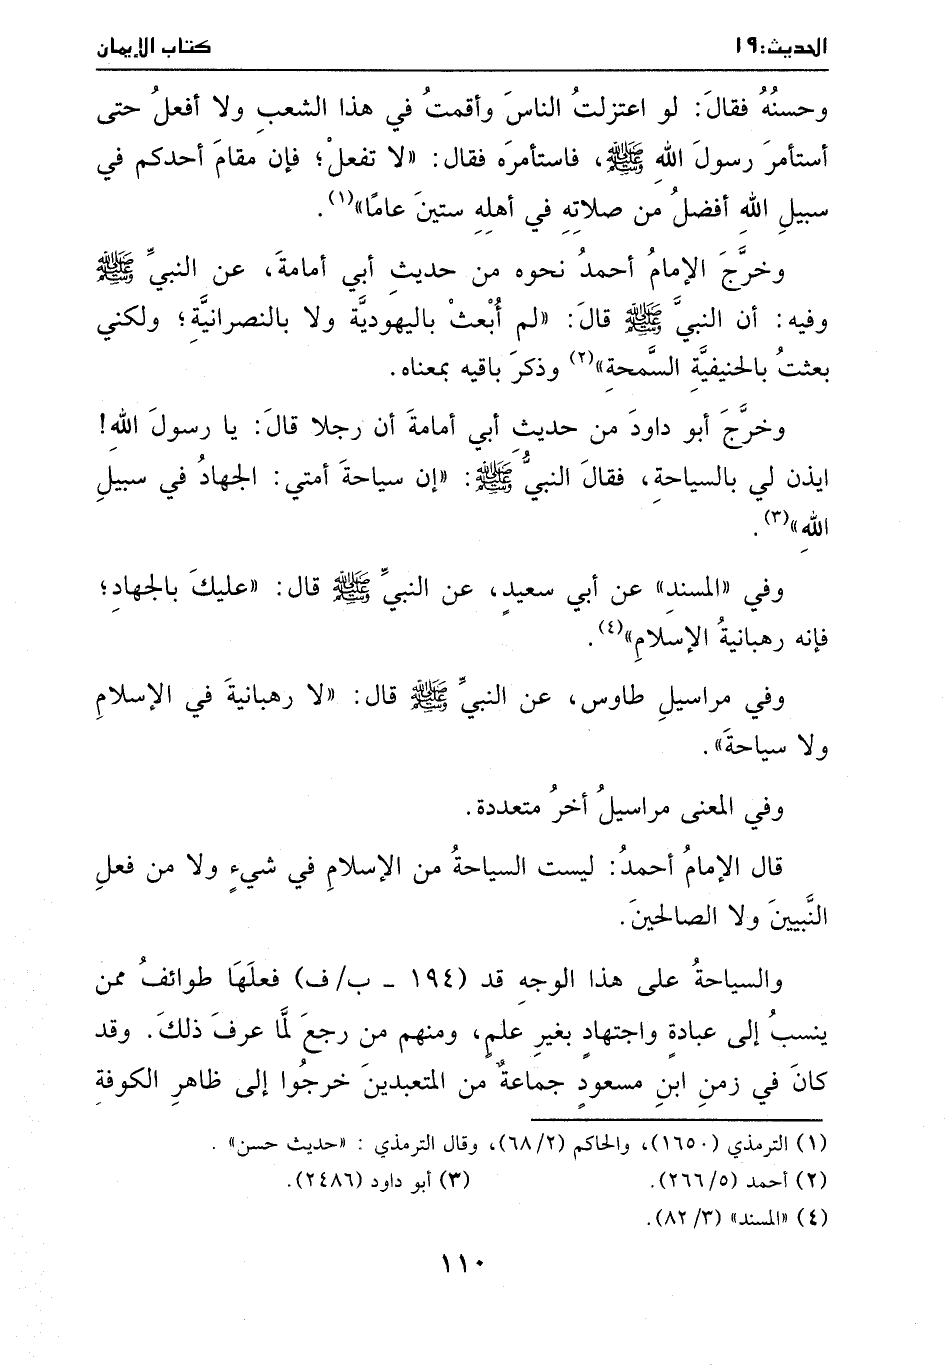 الحديث: ١٩ كتاب الإيمان
وحسنُهُ فقالَ: لو اعتزلتُ الناسَ وأقمتُ في هذا الشعبِ ولا أفعلُ حتى
أستأمرَ رسولَ اللهِ ﷺ، فاستأمرَه فقال: «لا تفعلْ؛ فإن مقامَ أحدكم في
سبيلِ اللهِ أفضلُ من صلاتِهِ في أهلِهِ ستينَ عامًا»(١).
وخرَّجَ الإمامُ أحمدُ نحوه من حديثِ أبي أمامةَ، عن النبيِّ ﷺ
وفيه: أن النبيَّ ﷺ قالَ: «لم أُبْعثْ باليهوديَّة ولا بالنصرانيَّةِ؛ ولكني
بعثتُ بالحنيفيَّةِ السَّمحةِ»(٢) وذكرَ باقيه بمعناه.
وخرَّجَ أبو داودَ من حديثِ أبي أمامةَ أن رجلا قالَ: يا رسولَ اللهِ!
ايذن لي بالسياحةِ، فقالَ النبيُّ ﷺ: «إن سياحةَ أمتي: الجهادُ في سبيلِ
اللهِ»(٣).
وفي «المسندِ» عن أبي سعيدٍ، عن النبيِّ ﷺ قال: «عليكَ بالجهادِ؛
فإنه رهبانيةُ الإسلامِ»(٤).
وفي مراسيلِ طاوس، عن النبيِّ ﷺ قال: «لا رهبانيةَ في الإسلامِ
ولا سياحةَ».
وفي المعنى مراسيلُ أخرُ متعددة.
قال الإمامُ أحمدُ: ليست السياحةُ من الإسلامِ في شيءٍ ولا من فعلِ
النَّبيينَ ولا الصالحينَ.
والسياحةُ على هذا الوجهِ قد (١٩٤ - ب/ف) فعلَهَا طوائفُ ممن
ينسبُ إلى عبادةٍ واجتهادٍ بغيرِ علمٍ، ومنهم من رجعَ لمَّا عرفَ ذلكَ. وقد
كانَ في زمنِ ابنِ مسعودٍ جماعةٌ من المتعبدينَ خرجُوا إلى ظاهرِ الكوفةِ
(١) الترمذي (١٦٥٠)، والحاكم (٦٨/٢)، وقال الترمذي: «حديث حسن».
(٢) أحمد (٢٦٦/٥). (٣) أبو داود (٢٤٨٦).
(٤) «المسند» (٨٢/٣).
١١٠